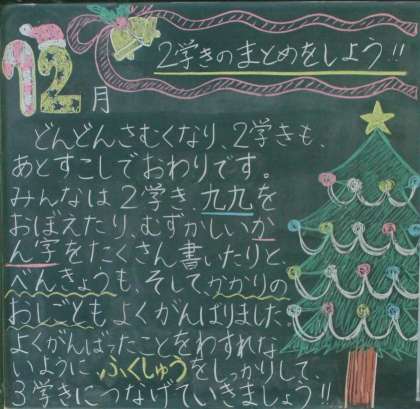 12月
2学きのまとめをしよう!!
どんどんさむくなり、2学きも、
あとすこしでおわりです。
みんなは2学き、九九を
おぼえたり、むずかしいか
ん字をたくさん書いたりと、
べんきょうも、そしてかかりの
おしごともよくがんばりました。
よくがんばったことをわすれな
いようにふくしゅうをしっかりして、
3学きにつなげていきましょう!!